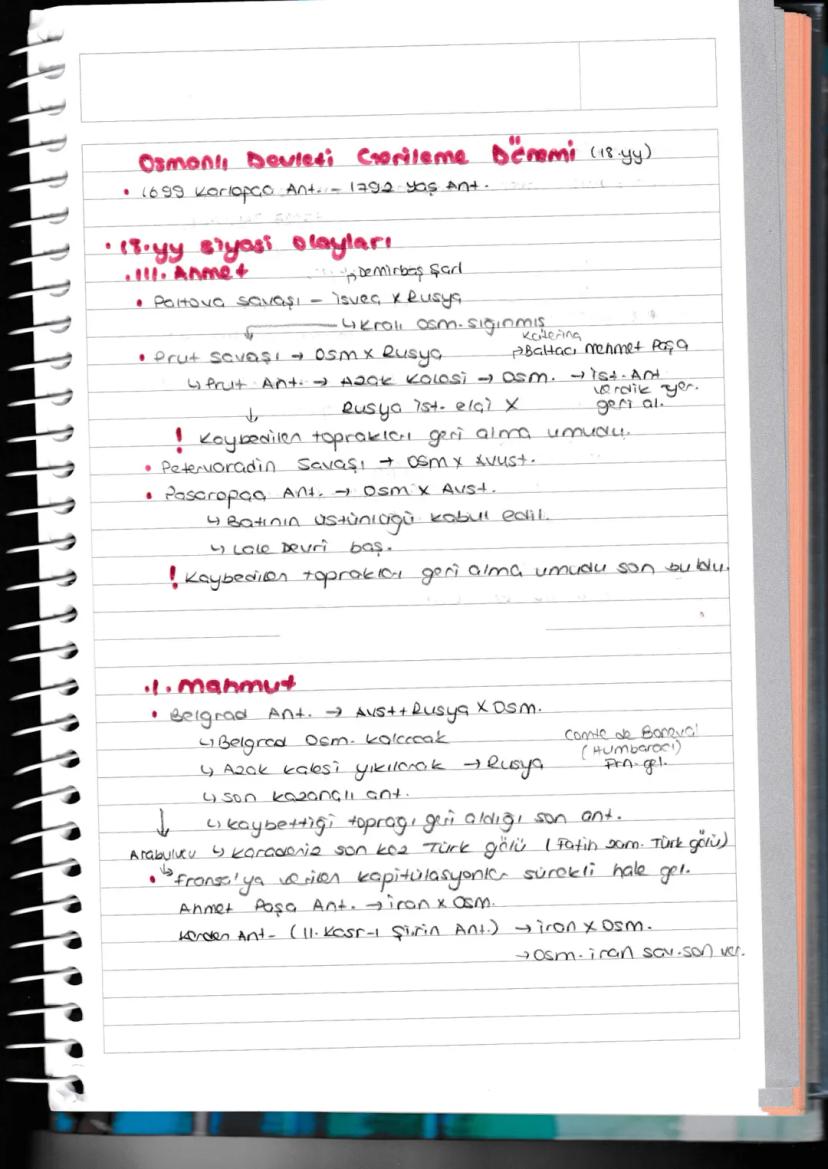 Osmanlı Devleti Gerileme Dönemi (18.yy)
• 1699 Karlofça Ant. - 1792 Yaş Ant.
• 18.yy Siyasi Olayları
• III. Ahmet
↳ Demirbaş Şarl
• Poltova savaşı - İsveç X Rusya
↳ Kralı Osm. sığınmış
Katerina
• Prut Savaşı → Osm X Rusya → Baltacı Mehmet Paşa
↳ Prut Ant. → Azak Kalesi → Osm. → İst. Ant
verdik yer.
↓ Rusya ist. elçi X geri al.
! Kaybedilen toprakları geri alma umudu.
• Petervaradin Savaşı → Osm X Avust.
• Pasarofça Ant. → Osm X Avst.
↳ Batının üstünlüğü kabul edil.
↳ Lale Devri baş.
! Kaybedilen toprakları geri alma umudu son buldu.
• I. Mahmut
• Belgrad Ant. → Avst + Rusya X Osm.
↳ Belgrad Osm. kalacak
Comte de Boneval
(Humbaracı)
↳ Azak kalesi yıkılacak → Rusya
↳ son kazançlı ant.
↓ ↳ kaybettiği toprağı geri aldığı son ant.
Arabulucu ↳ Karadeniz son kez Türk gölü (Fatih zam. Türk gölü)
• ↳ Fransa'ya verilen kapitülasyonlar sürekli hale gel.
Ahmet Paşa Ant. → İran X Osm.
Kerden Ant- (II. Kasr-ı Şirin Ant.) → İran X Osm.
→ Osm. İran sav. son ver.